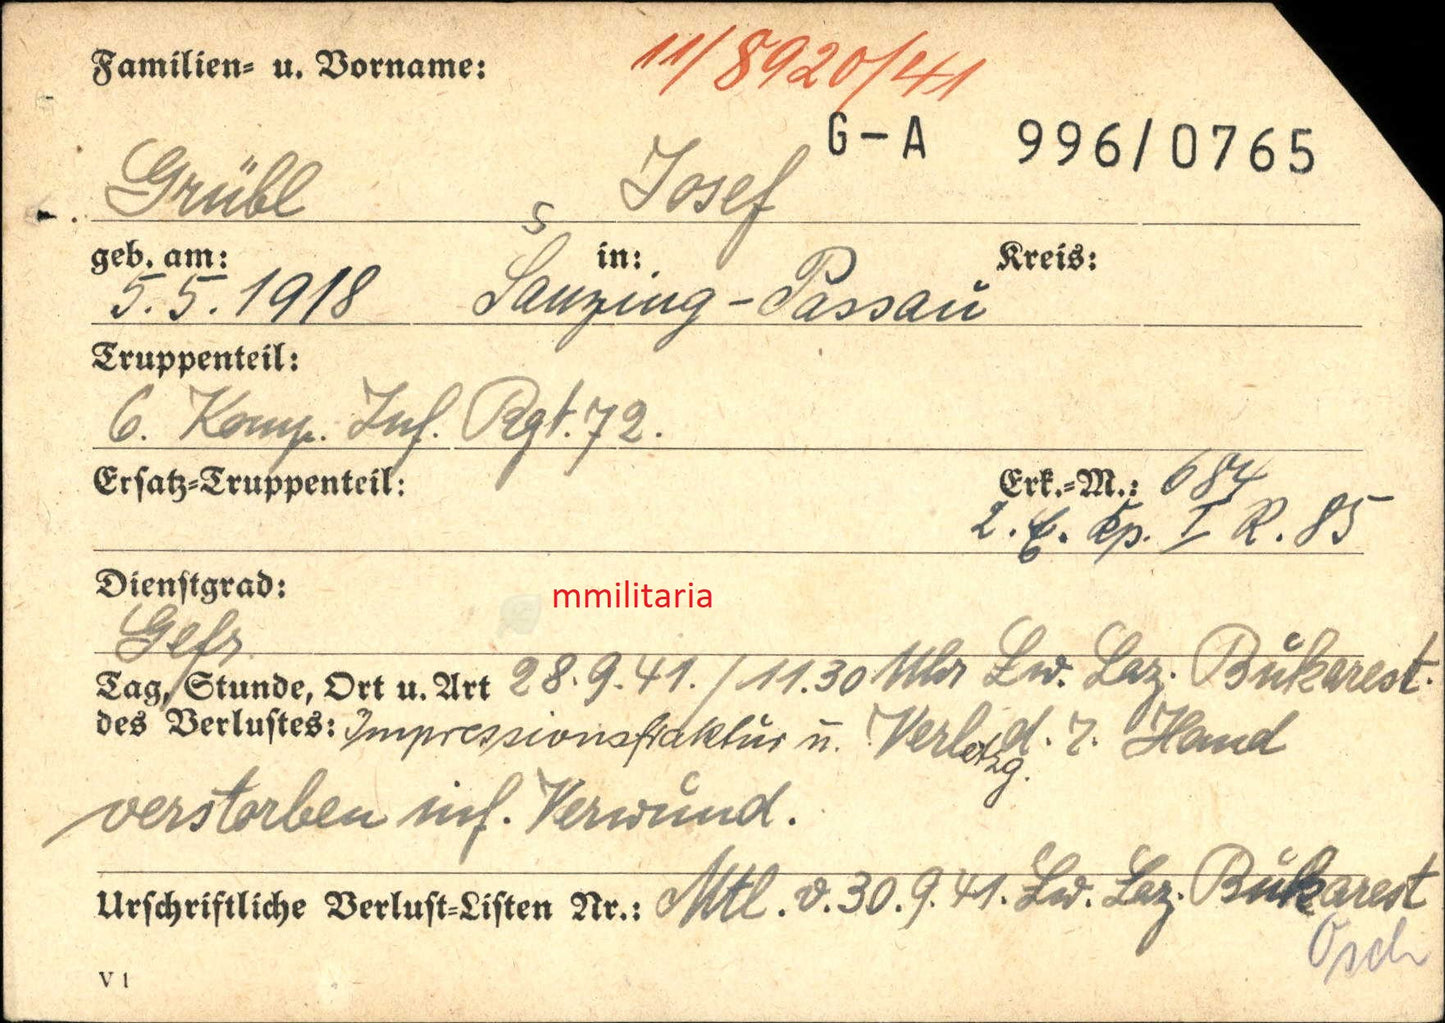 Familien- u. Vorname:
11/8920/41
G-A 996/0765
Grübl Josef
geb. am: in: Kreis:
5
5.5.1918 Sanzing - Passau
Truppenteil:
6. Komp. Inf. Rgt. 72.
Ersatz-Truppenteil: Erk.-M.: 684
2. E. Kp. I R. 85
Dienstgrad:
mmilitaria
Gefr.
Tag, Stunde, Ort u. Art 28.9.41. / 11.30 Uhr Lw. Laz. Bukarest.
des Verlustes: Impressionsfraktur u. Verletzg. d. r. Hand
verstorben inf. Verwund.
Urschriftliche Verlust-Listen Nr.: Mtl. v. 30.9.41. Lw. Laz. Bukarest
V 1